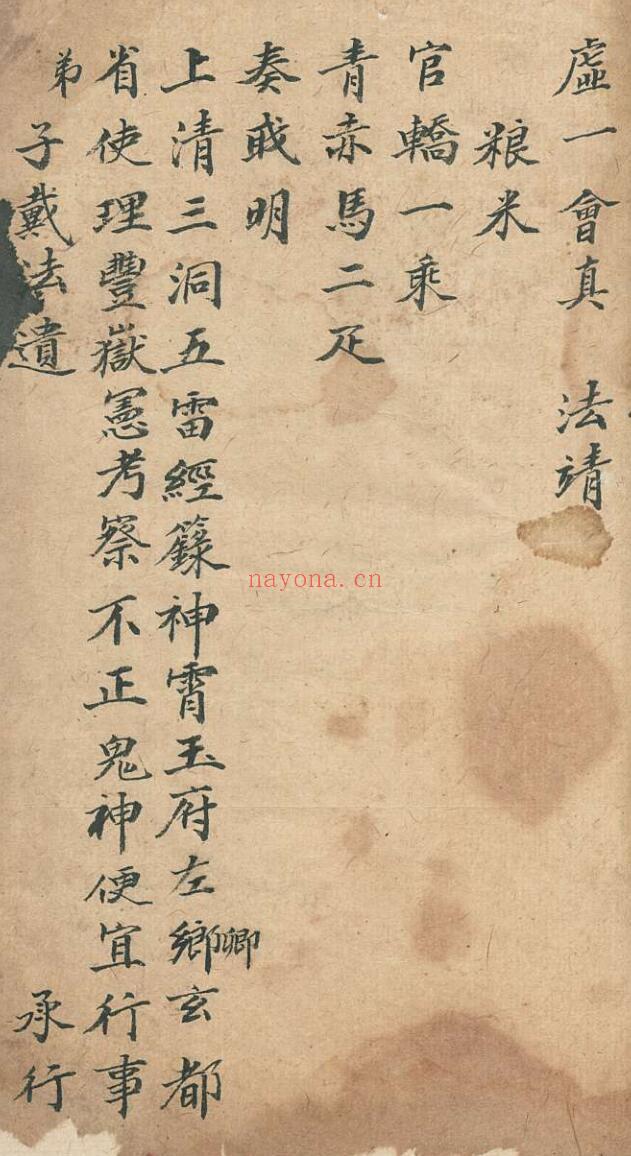 虛一會真 法靖
粮米
官轎一乘
青赤馬二疋
奏戝明
上清三洞五雷經籙神霄玉府左鄉卿玄都
省使理豐嶽憲考察不正鬼神便宜行事
弟子戴法遺 承行
nayona.cn